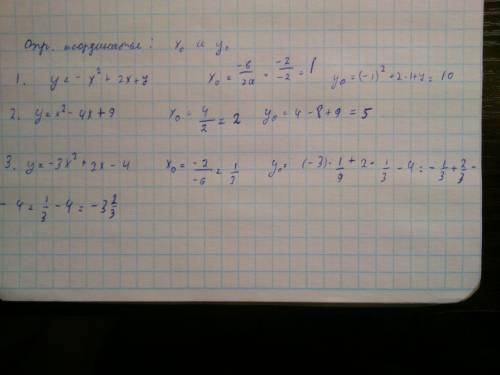 Опр. координаты: x₀ и y₀
1. y = - x² + 2x + 7 x₀ = -b/2a = -2/-2 = 1 y₀ = (-1)² + 2·1 + 7 = 10
2. y = x² - 4x + 9 x₀ = 4/2 = 2 y₀ = 4 - 8 + 9 = 5
3. y = -3x² + 2x - 4 x₀ = -2/-6 = 1/3 y₀ = (-3)·1/9 + 2·1/3 - 4 = -1/3 + 2/3 -
- 4 = 1/3 - 4 = -3 2/3